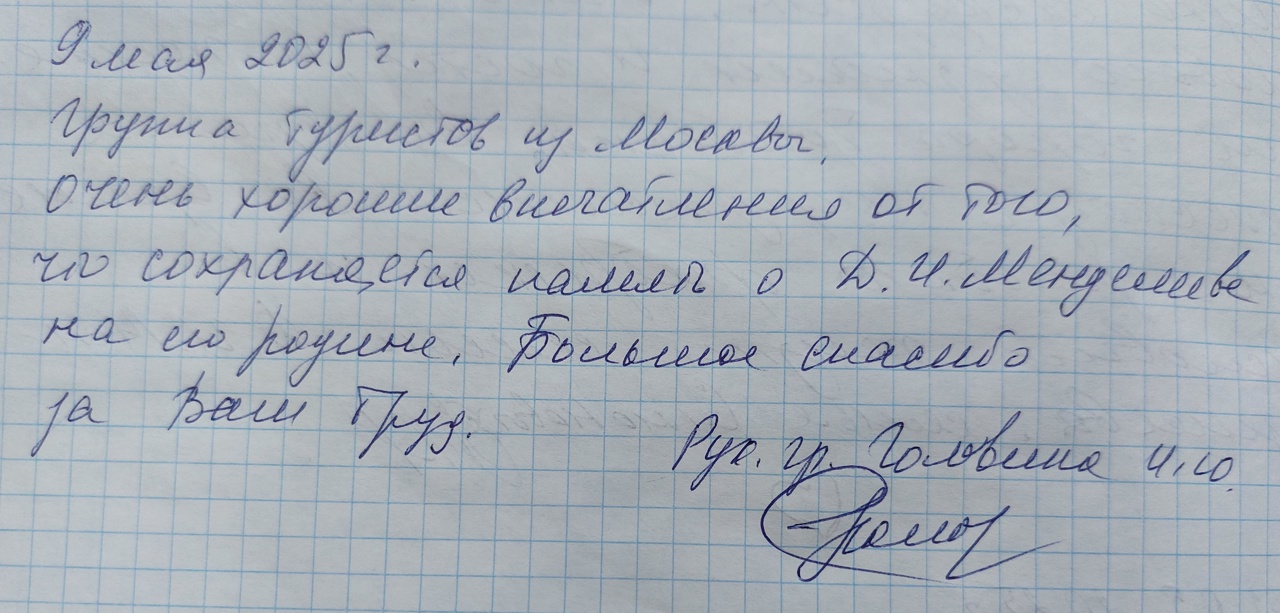 9 мая 2025 г.
Группа туристов из Москвы.
Очень хорошие впечатления от того,
что сохраняется память о Д. И. Менделееве
на его родине. Большое спасибо
за Ваш труд.
Рук. гр. Головина И.Ю.